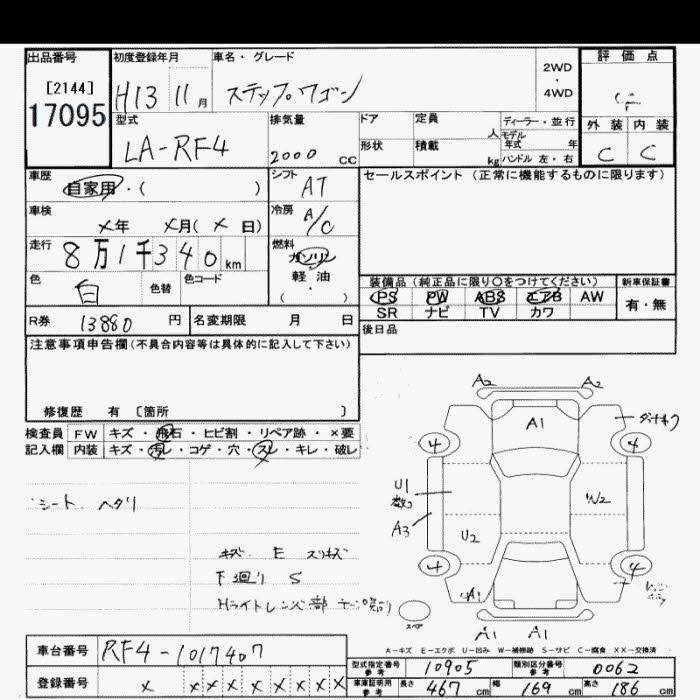 出品番号
[2144]
17095
初度登録年月
H13 11月
車名・グレード
ステップワゴン
2WD
・
4WD
評価点
外装 内装
C C
型式
LA-RF4
排気量
2000 CC
ドア 定員 人
形状 積載 kg
ディーラー・並行
モデル年式 年
ハンドル 左・右
車歴
自家用・( )
シフト
AT
セールスポイント(正常に機能するものに限ります)
車検
×年 ×月(×日)
冷房
A/C
走行
8万1千340km
燃料
ガソリン
軽・油
( ・ )
色
白
色替
色コード
装備品(純正品に限り○をつけてください)
PS PW ABS エアB AW
SR ナビ TV カワ
新車保証書
有・無
R券 13880円
名変期限 月 日
後日品
注意事項申告欄(不具合内容等は具体的に記入して下さい)
修復歴 有 〔箇所 〕
検査員 FW キズ・飛石・ヒビ割・リペア跡・×要
記入欄 内装 キズ・汚レ・コゲ・穴・スレ・キレ・破レ
シート ヘタリ
キズ E スリキズ
下廻り S
Hライトレンズ部
A2 A2
A1
4 4
U1
数コ
A3
U2
W2
4 4
A1
スペア
A1 A1
A-キズ E-エクボ U-凹み W-補修跡 S-サビ C-腐食 XX-交換済
車台番号 RF4-1017407
登録番号 × × × × × × × × ×
型式指定番号 参考 10905
類別区分番号 参考 0062
車庫証明用 参考 長さ 467cm 幅 169cm 高さ 186cm